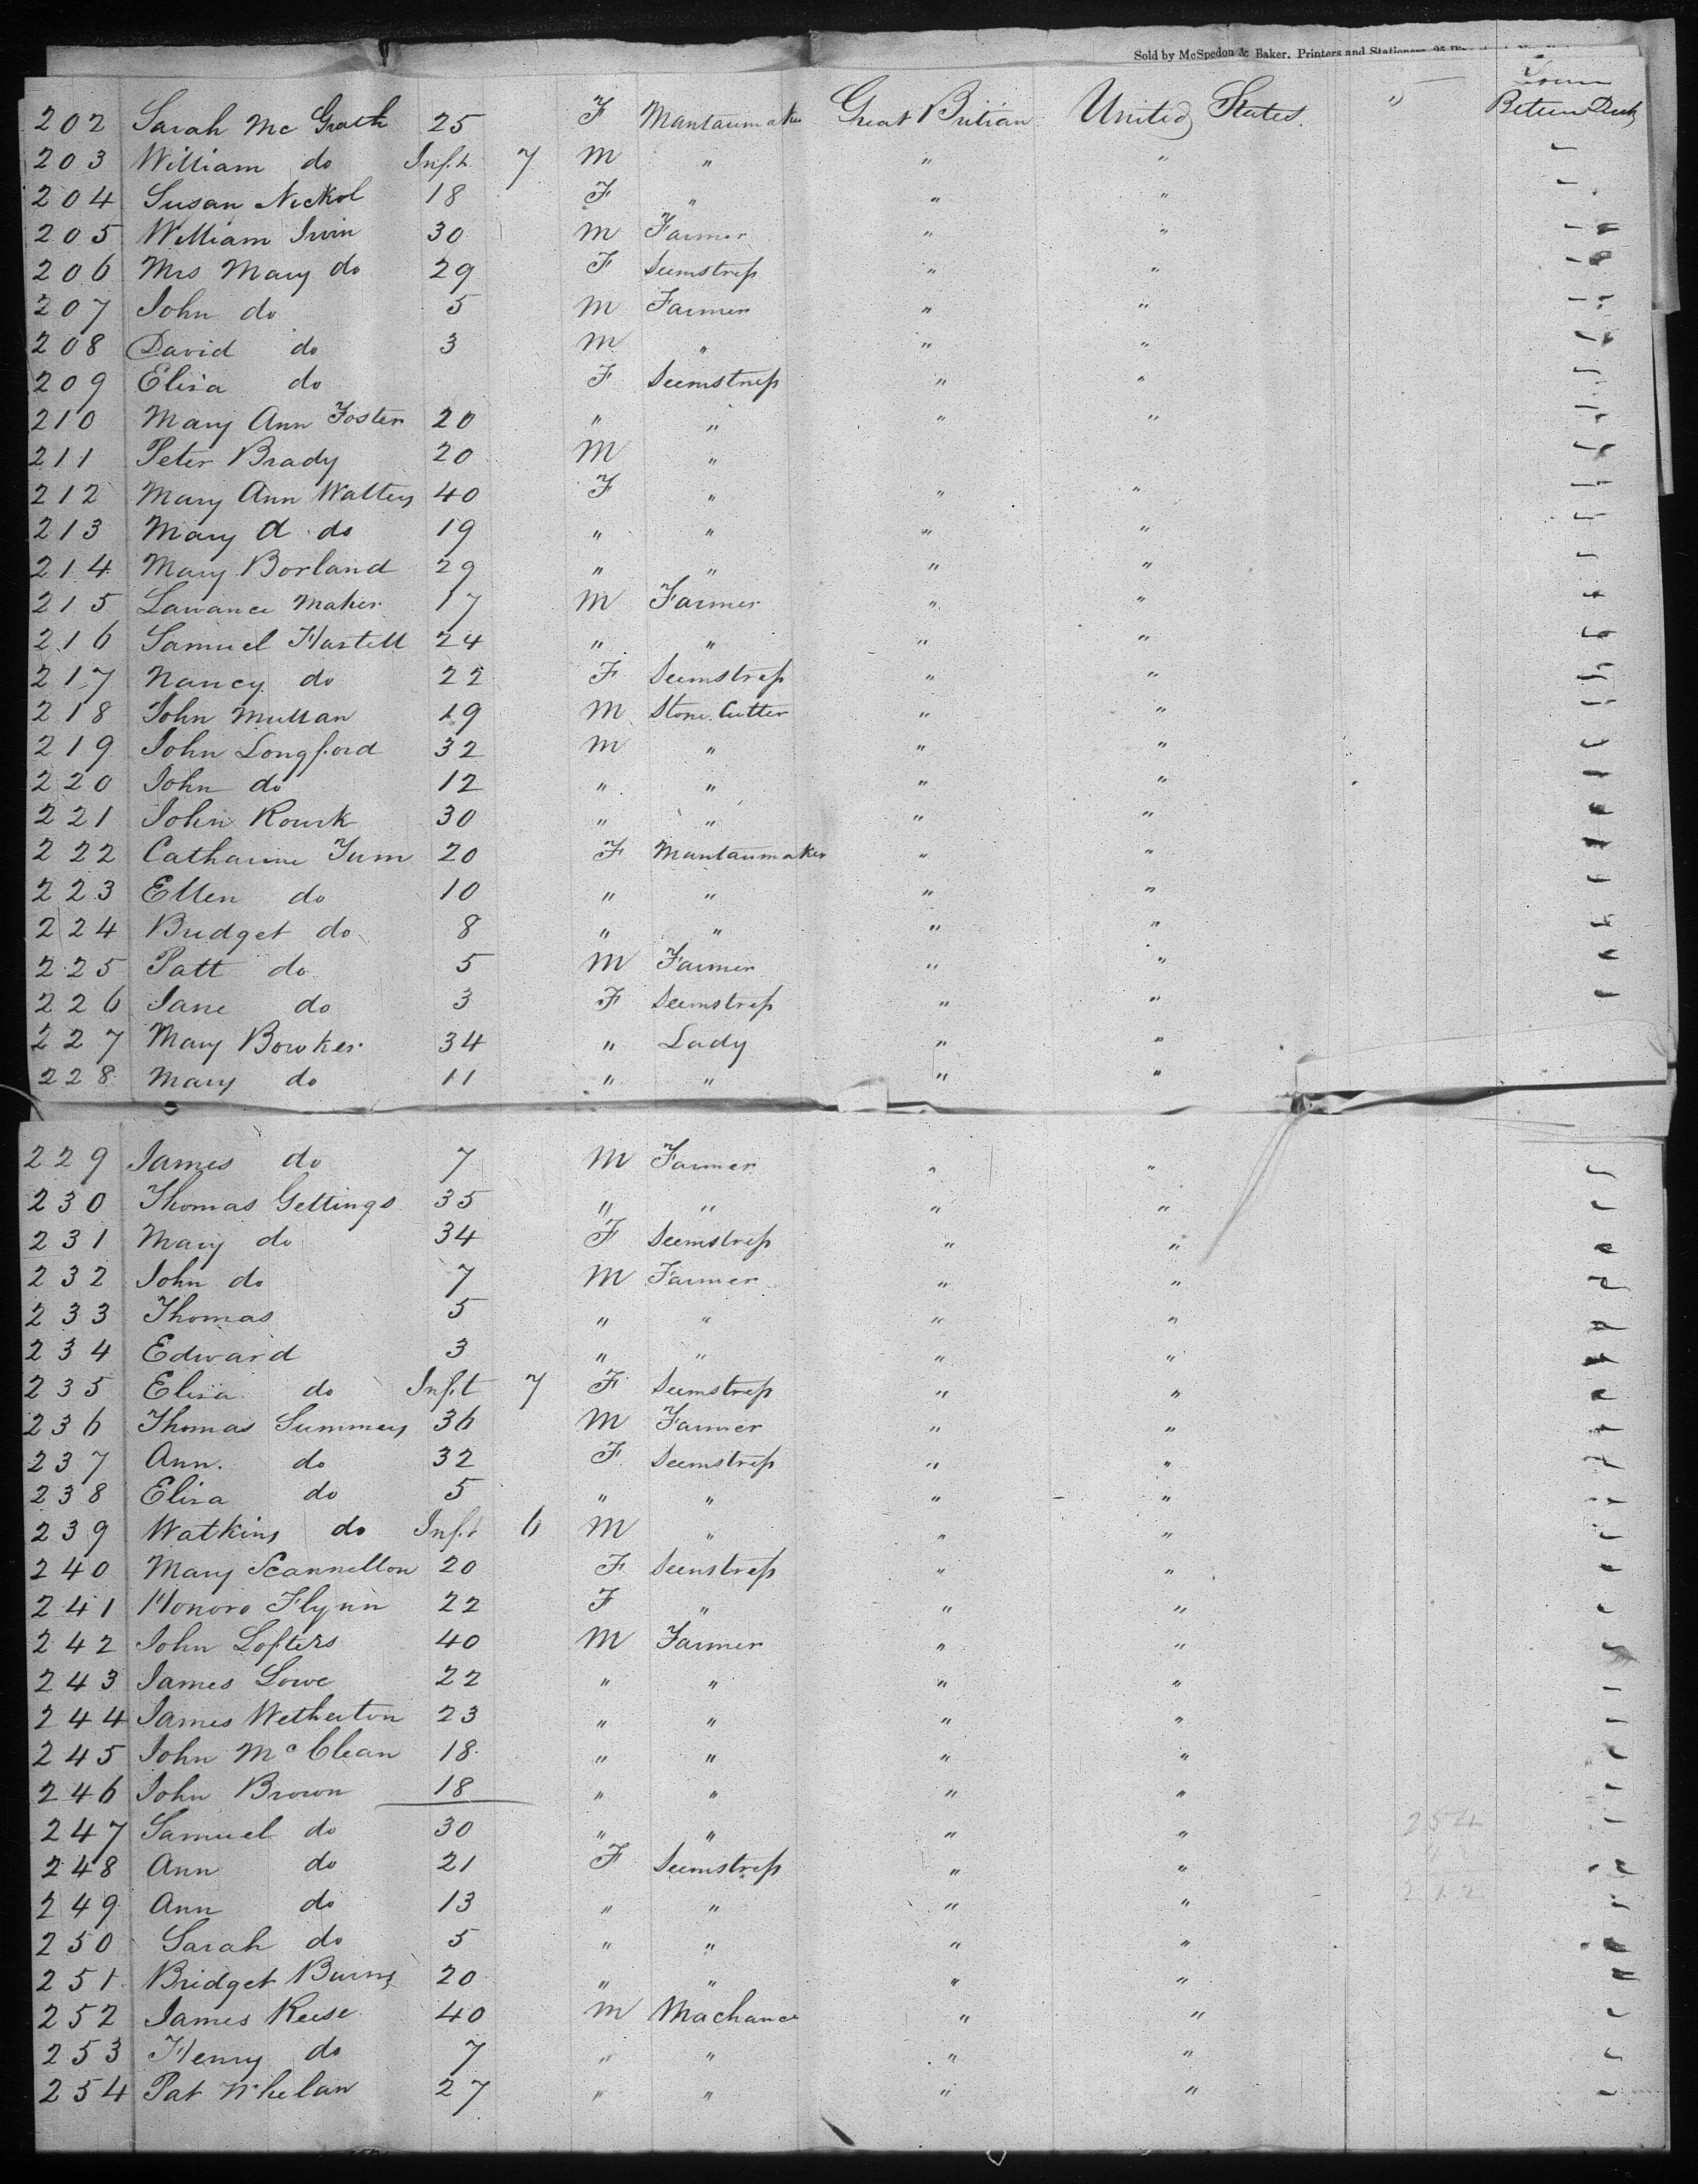 Sold by McSpedon & Baker, Printers and Stationers
202 Sarah Mc Grath 25 F Mantaumaker Great Britian United States " Between Deck
203 William do Inft 7 M " " "
204 Susan Nickol 18 F " " "
205 William Irvin 30 M Farmer " "
206 Mrs Mary do 29 F Seemstress " "
207 John do 5 M Farmer " "
208 David do 3 M " " "
209 Eliza do F Seemstress " "
210 Mary Ann Foster 20 " " " "
211 Peter Brady 20 M "
212 Mary Ann Walters 40 F " " "
213 Mary A do 19 " " " "
214 Mary Borland 29 " " " "
215 Lawance Maher 17 M Farmer " "
216 Samuel Hartell 24 " " " "
217 Nancy do 22 F Seemstress " "
218 John Mullan 19 M Stone Cutter " "
219 John Longford 32 M " " "
220 John do 12 " " " "
221 John Rourk 30 " " " "
222 Catharine Tum 20 F Mantaumaker " "
223 Ellen do 10 " " " "
224 Bridget do 8 " " " "
225 Patt do 5 M Farmer " "
226 Jane do 3 F Seemstress " "
227 Mary Bowker 34 " Lady " "
228 Mary do 11 " " " "
229 James do 7 M Farmer " "
230 Thomas Gettings 35 " " " "
231 Mary do 34 F Seemstress " "
232 John do 7 M Farmer " "
233 Thomas 5 " " " "
234 Edward 3 " " " "
235 Eliza do Inft 7 F Seemstress " "
236 Thomas Summers 36 M Farmer " "
237 Ann do 32 F Seemstress " "
238 Eliza do 5 " " " "
239 Watkins do Inft 6 M " " "
240 Mary Scannellon 20 F Seenstress " "
241 Honoro Flynn 22 F " " "
242 John Lofters 40 M Farmer " "
243 James Lowe 22 " " " "
244 James Wetherton 23 " " " "
245 John McClean 18 " " " "
246 John Brown 18 " " " "
247 Samuel do 30 " " " " 254
248 Ann do 21 F Seemstress " "
249 Ann do 13 " " " " 212
250 Sarah do 5 " " " "
251 Bridget Burns 20 " " " "
252 James Reese 40 M Machance " "
253 Henry do 7 " " " "
254 Pat Whelan 27 " " " "